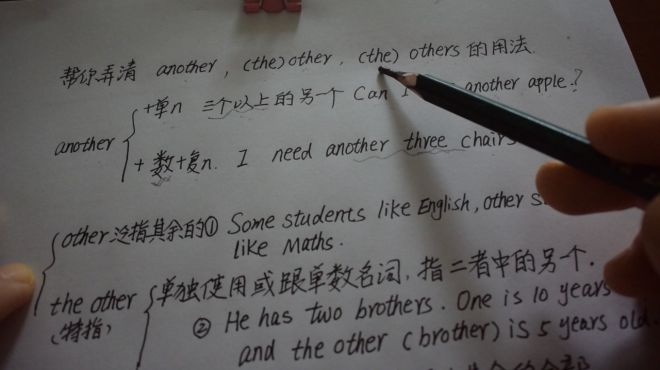 帮你弄清 another, (the)other, (the) others 的用法.
+单n 三个以上的另一个 Can I another apple?
another
+数+复n. I need another three chairs
other 泛指其余的① Some students like English, other s
like Maths.
the other 单独使用或跟单数名词, 指二者中的另一个.
(特指) ② He has two brothers. One is 10 years
and the other (brother) is 5 years old